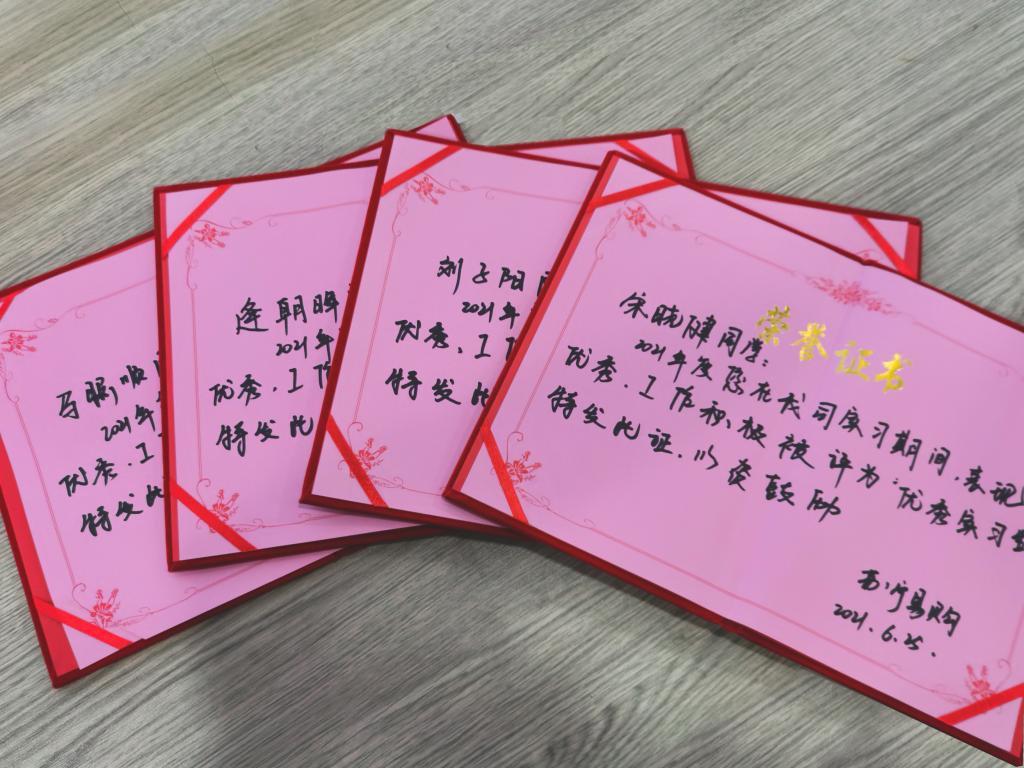 荣誉证书
宋晓健同学：
2021年度您在我司实习期间，表现
优秀，工作积极被评为“优秀实习生
特发此证，以资鼓励
苏宁易购
2021.6.25.
刘子阳同
2021年
优秀，工作
特发此
逄朝晖
2021年
优秀，工作
特发此
马
2021年
优秀，工
特发此